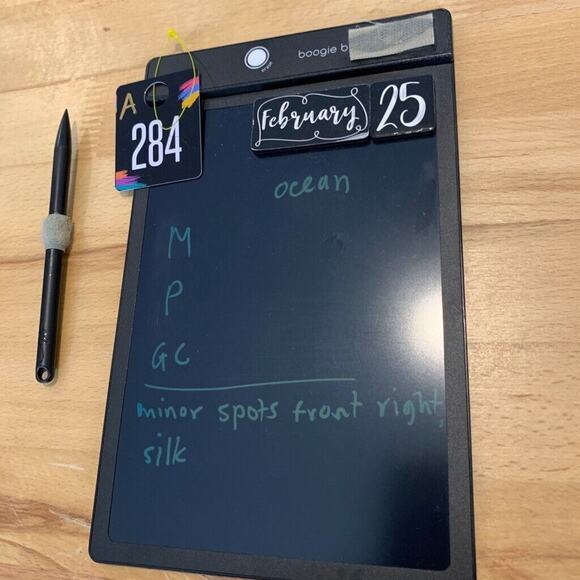 boogie b
A
284
February 25
ocean
M
P
GC
minor spots front right,
silk